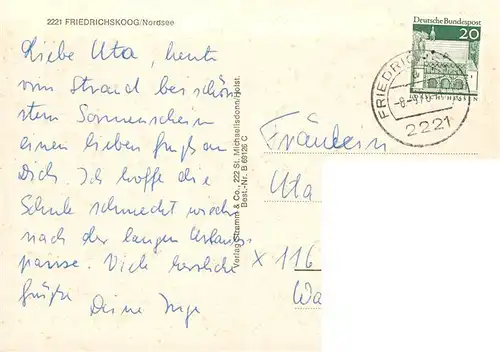 2221 FRIEDRICHSKOOG/Nordsee
Liebe Uta, heute
vom Strand bei schön-
stem Sonnenschein
einen lieben Gruß an
Dich. Ich hoffe die
Schule schmeckt wieder
nach der langen Urlaubs-
pause. Viele herzliche
Grüße
Deine Inge
Verlag Stramm & Co., 222 St. Michaelisdonn/Holst.
Best.-Nr. B 69126 C
Deutsche Bundespost
20
FRIEDRI
2221
Fräulein
Uta
X 116
Wa